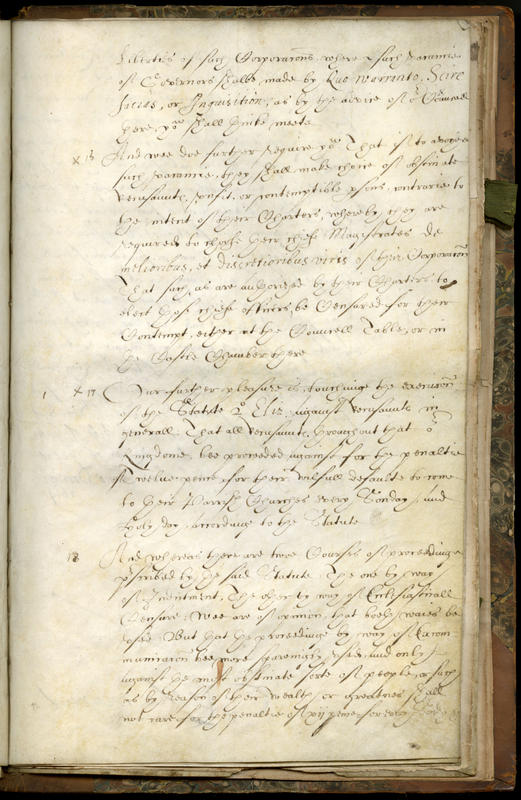 liberties of such Corporacons, where such vacancie
of Governors shalbe, made by Quo Warrinto, Scire
facias, or Inquisition, as by the advice of or Councell
there, yow shall thinke meete
x 15 And wee doe further require yow That if to avoyde
such vacancie, they shall make choice of obstinate
Recusants, unfit, or contemptible psons, contrarie to
the intent of their Charters, whereby they are
required to choose their chiefe Magistrates de
melioribus, et discretioribus viris of their Corporacon
That such, as are authorized by their Charters to
elect those chiefe officers, be Censured for their
Contempt, either at the Councell Table, or in
the Castle Chamber there
1 x 17 Our further pleasure is, touchinge the execucon
of the Statute 2o Eliz: against Recusants in
generall That all Recusants throughout that or
Kingdome, bee proceeded against for the penaltie
Twelve pence for their wilfull defaulte to come
to their Parrish Churches every Sonday, and
Holy day, accordinge to the Statute
18 And whereas there are twoe Courses of proceedinge
pscribed by the said Statute The one by way
of Inditement, The other by way of Ecclesiasticall
Censure: Wee are of opinion, that both waies be
used But that the proceedinge by way of Excom
municacon bee more sparingly used, and only
against the most obstinate sorte of people, or such
as by reason of their wealth, or greatnes shall
not care for the penaltie of xij pence for every